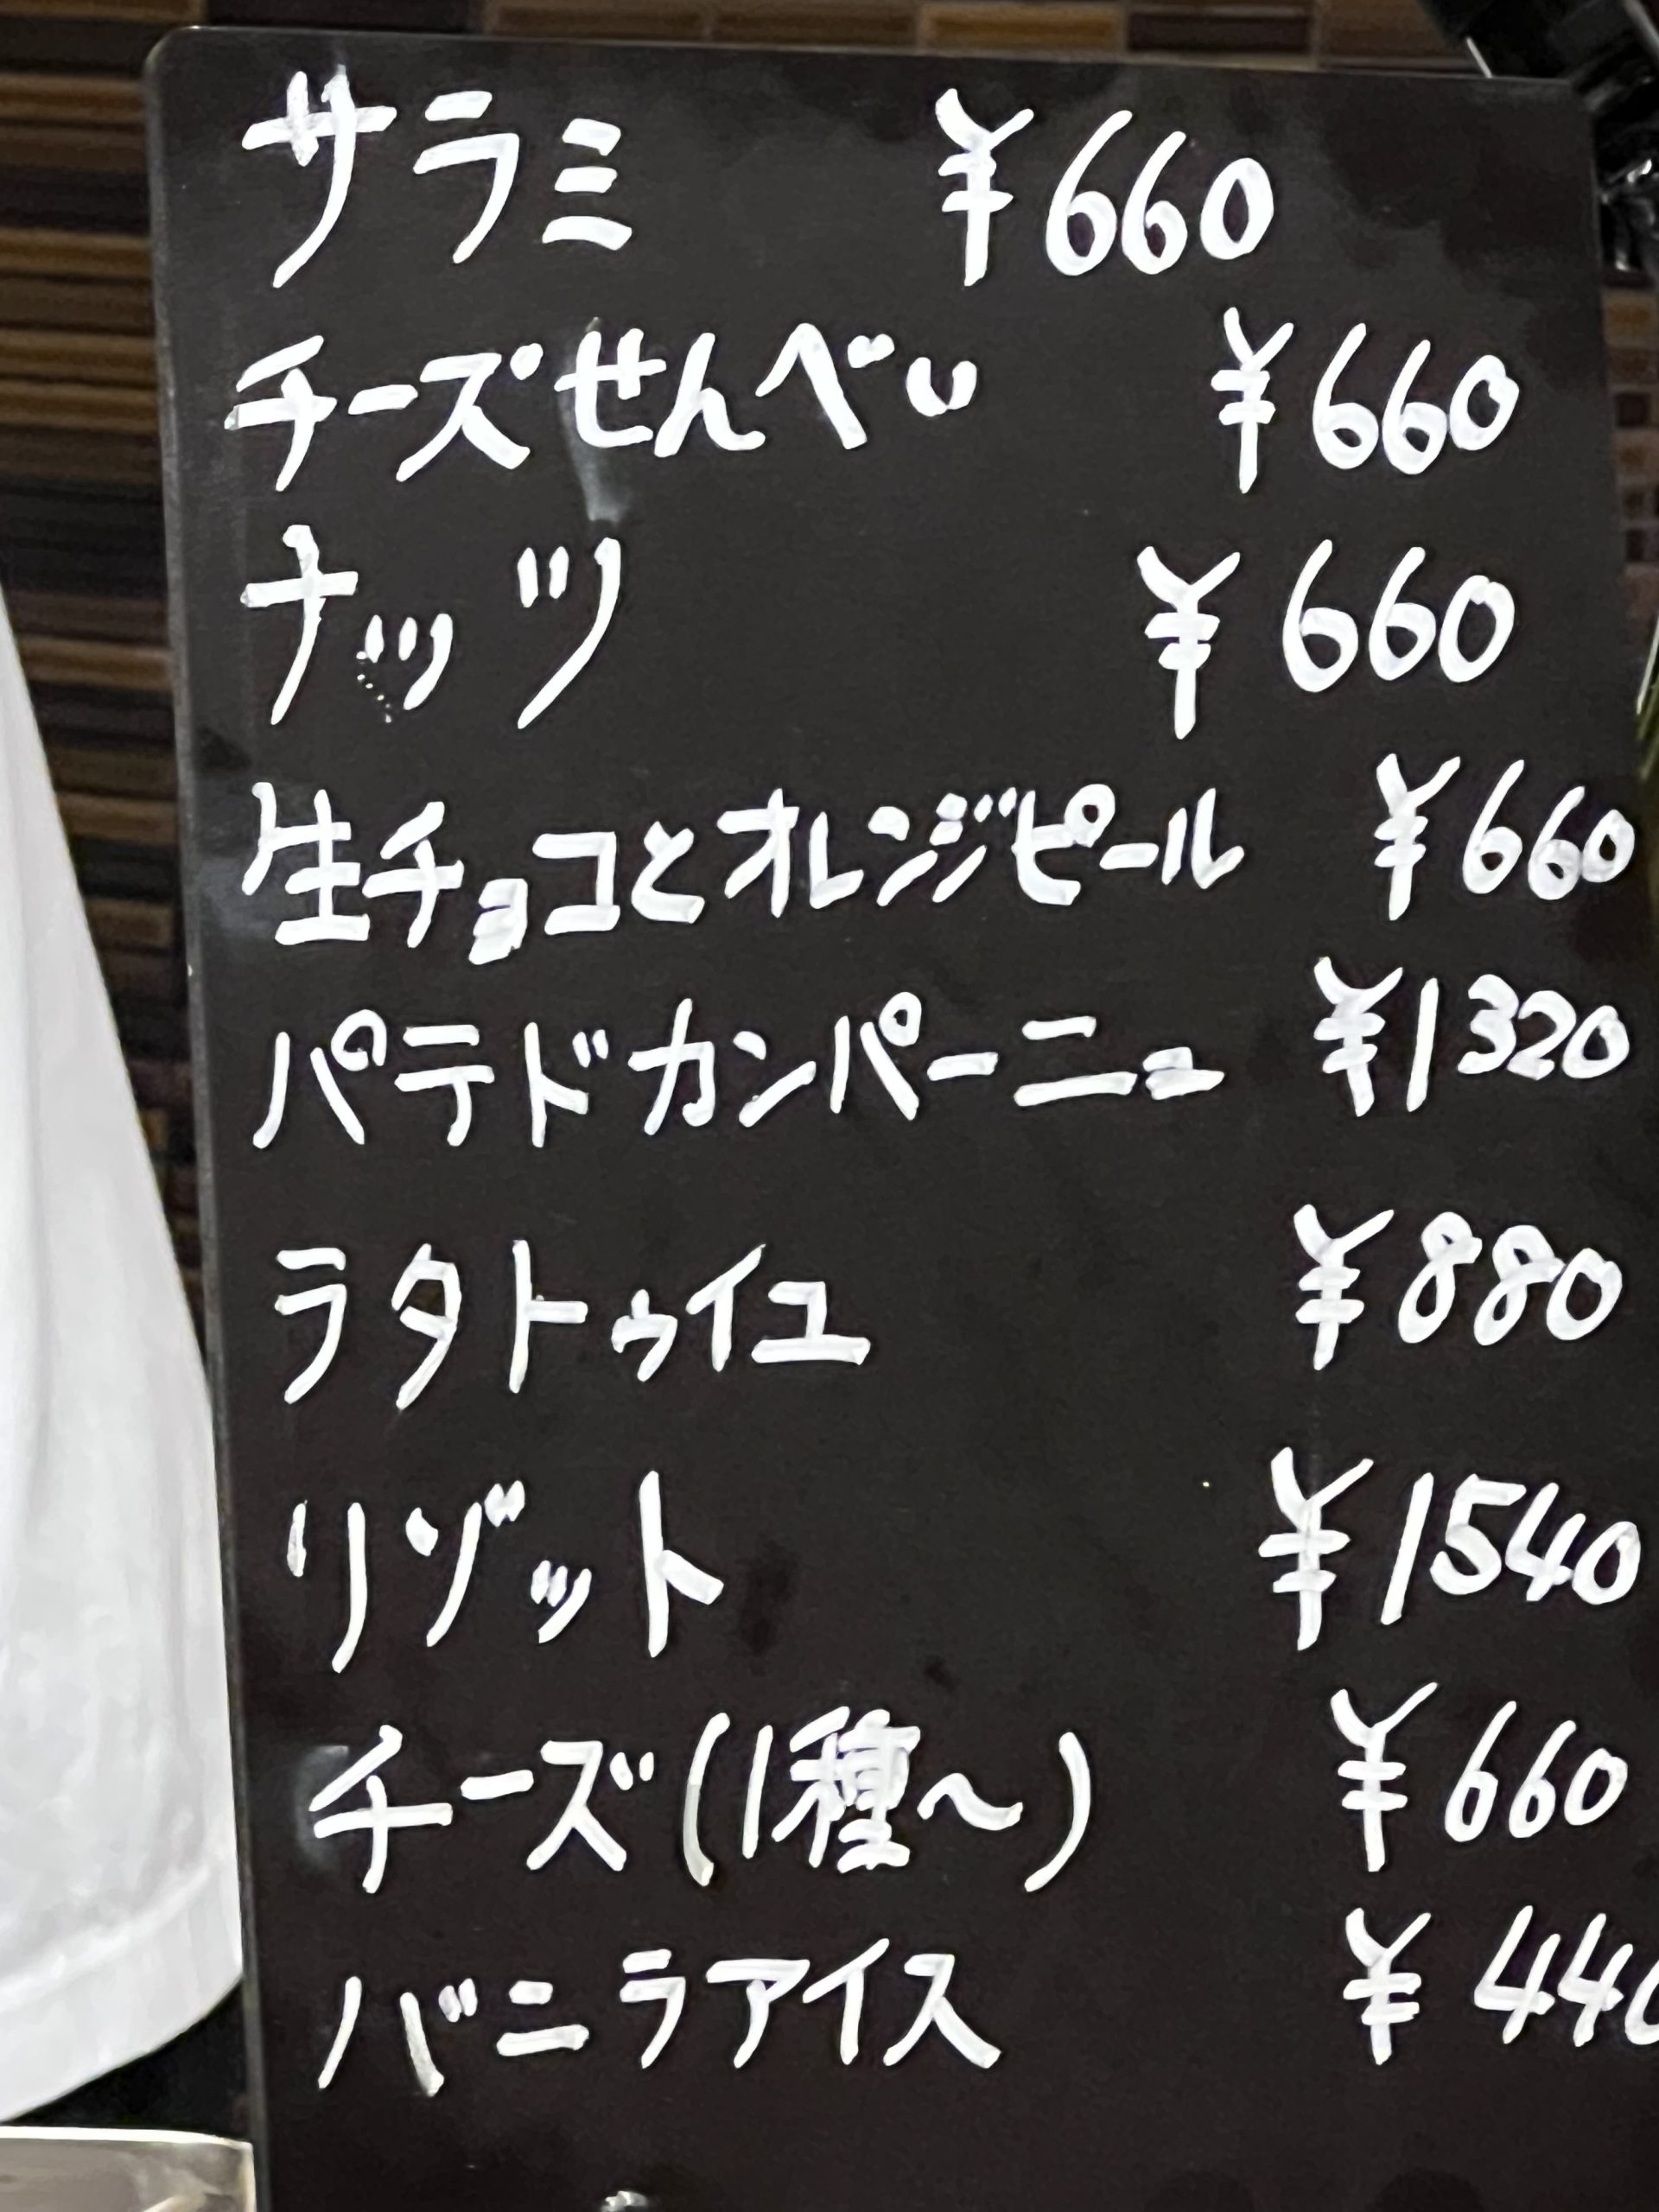 サラミ ¥660
チーズせんべい ¥660
ナッツ ¥660
生チョコとオレンジピール ¥660
パテドカンパーニュ ¥1320
ラタトゥイユ ¥880
リゾット ¥1540
チーズ(1種〜) ¥660
バニラアイス ¥440